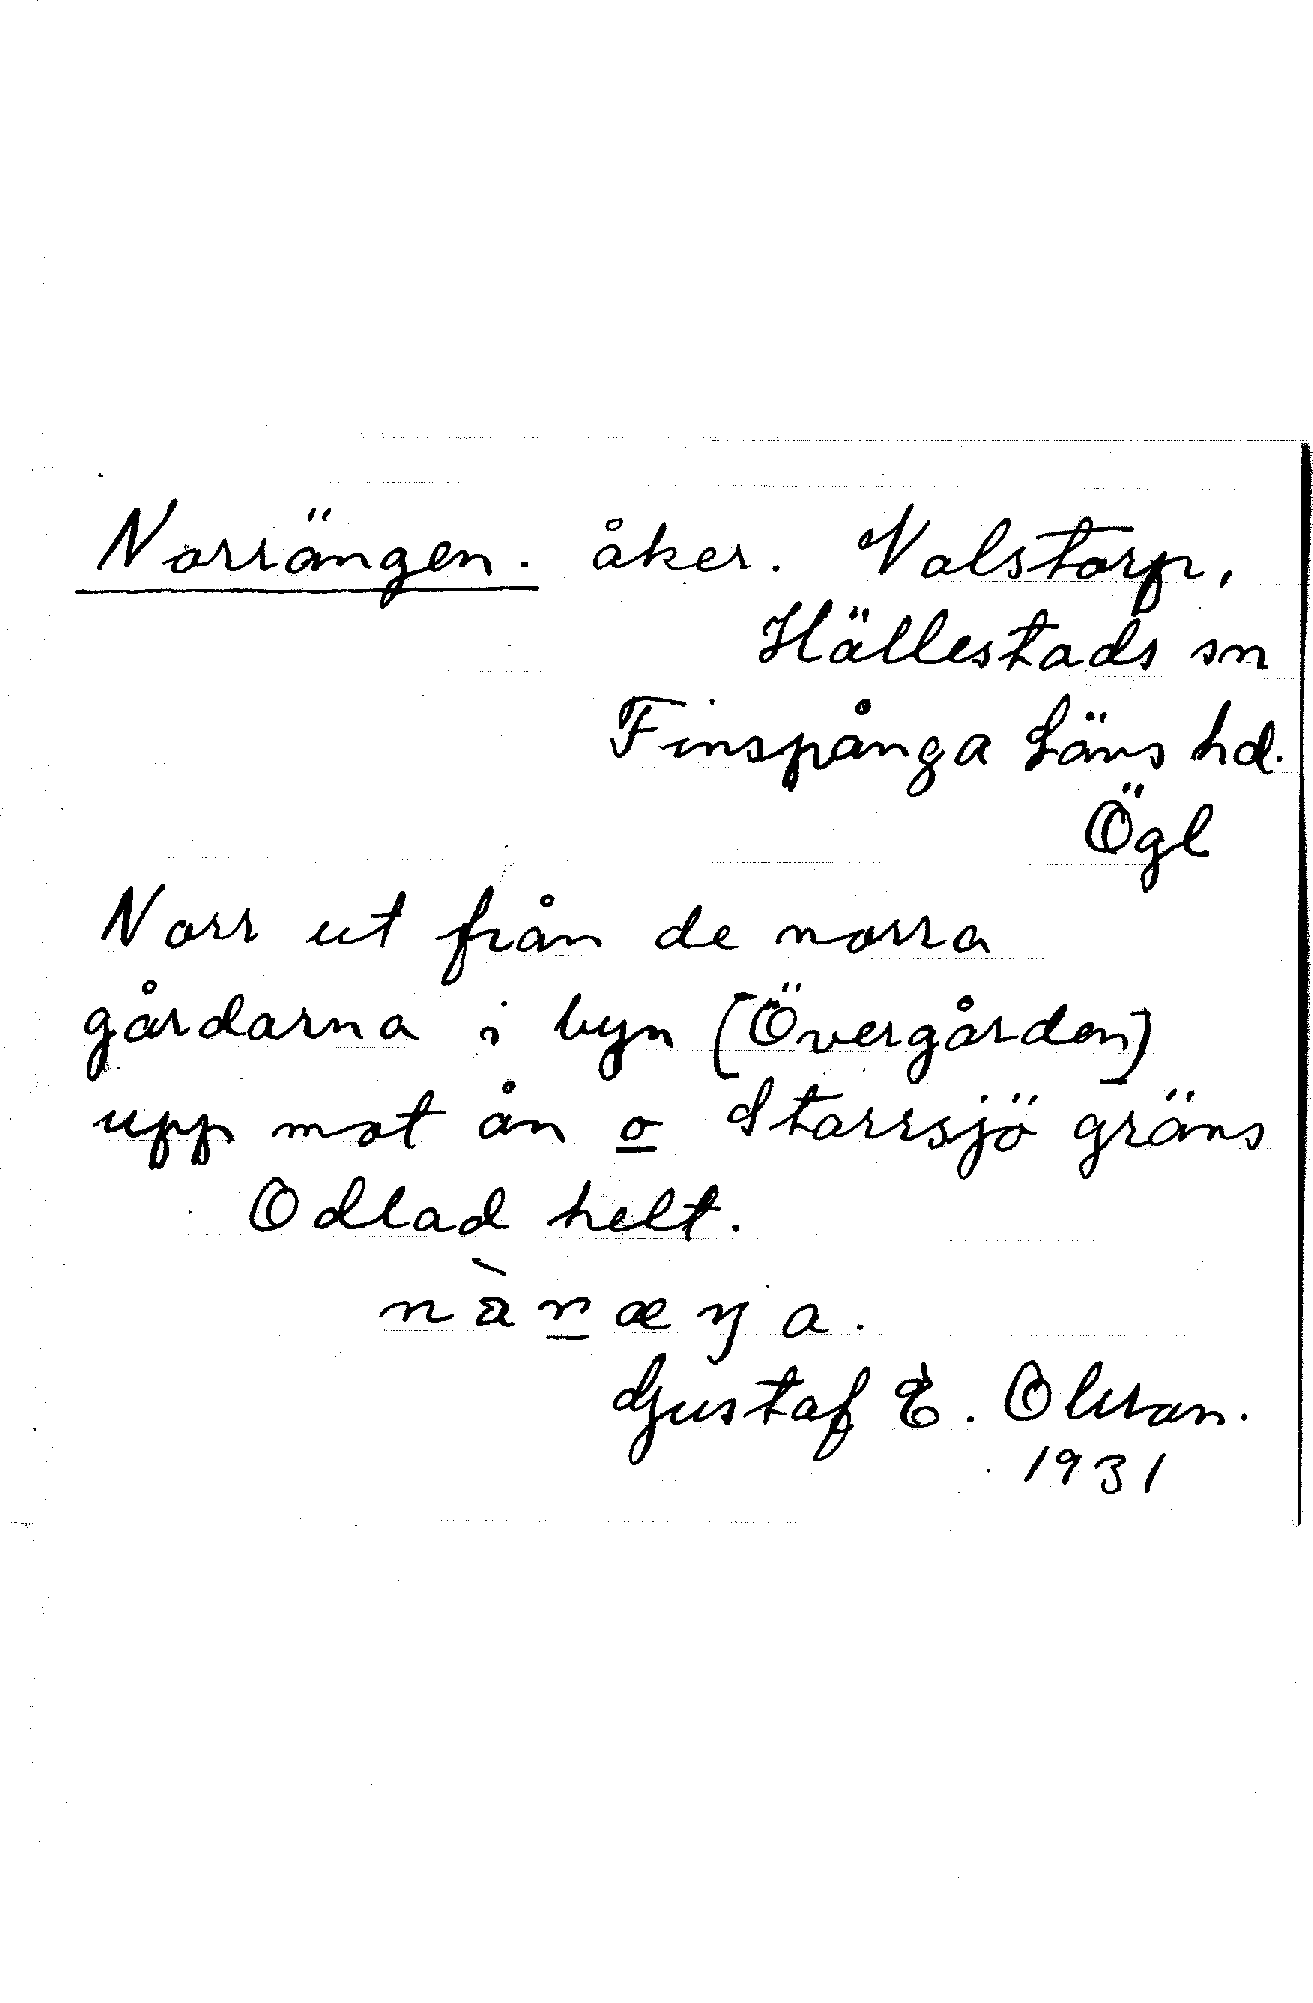 Norrängen. åker. Valstorp,
Hällestads sn
Finspånga Läns hd.
Ögl
Norr ut från de norra
gårdarna i byn [Övergården]
upp mot ån o Starrsjö gräns
Odlad helt.
nàræŋa.
Gustaf E. Olsson.
1931